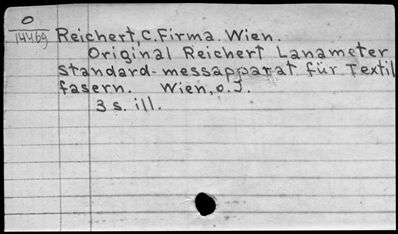 0
14469
Reichert, C. Firma. Wien.
Original Reichert Lanameter
standard-messapparat für Textil
fasern. Wien, o.J.
3 s. ill.